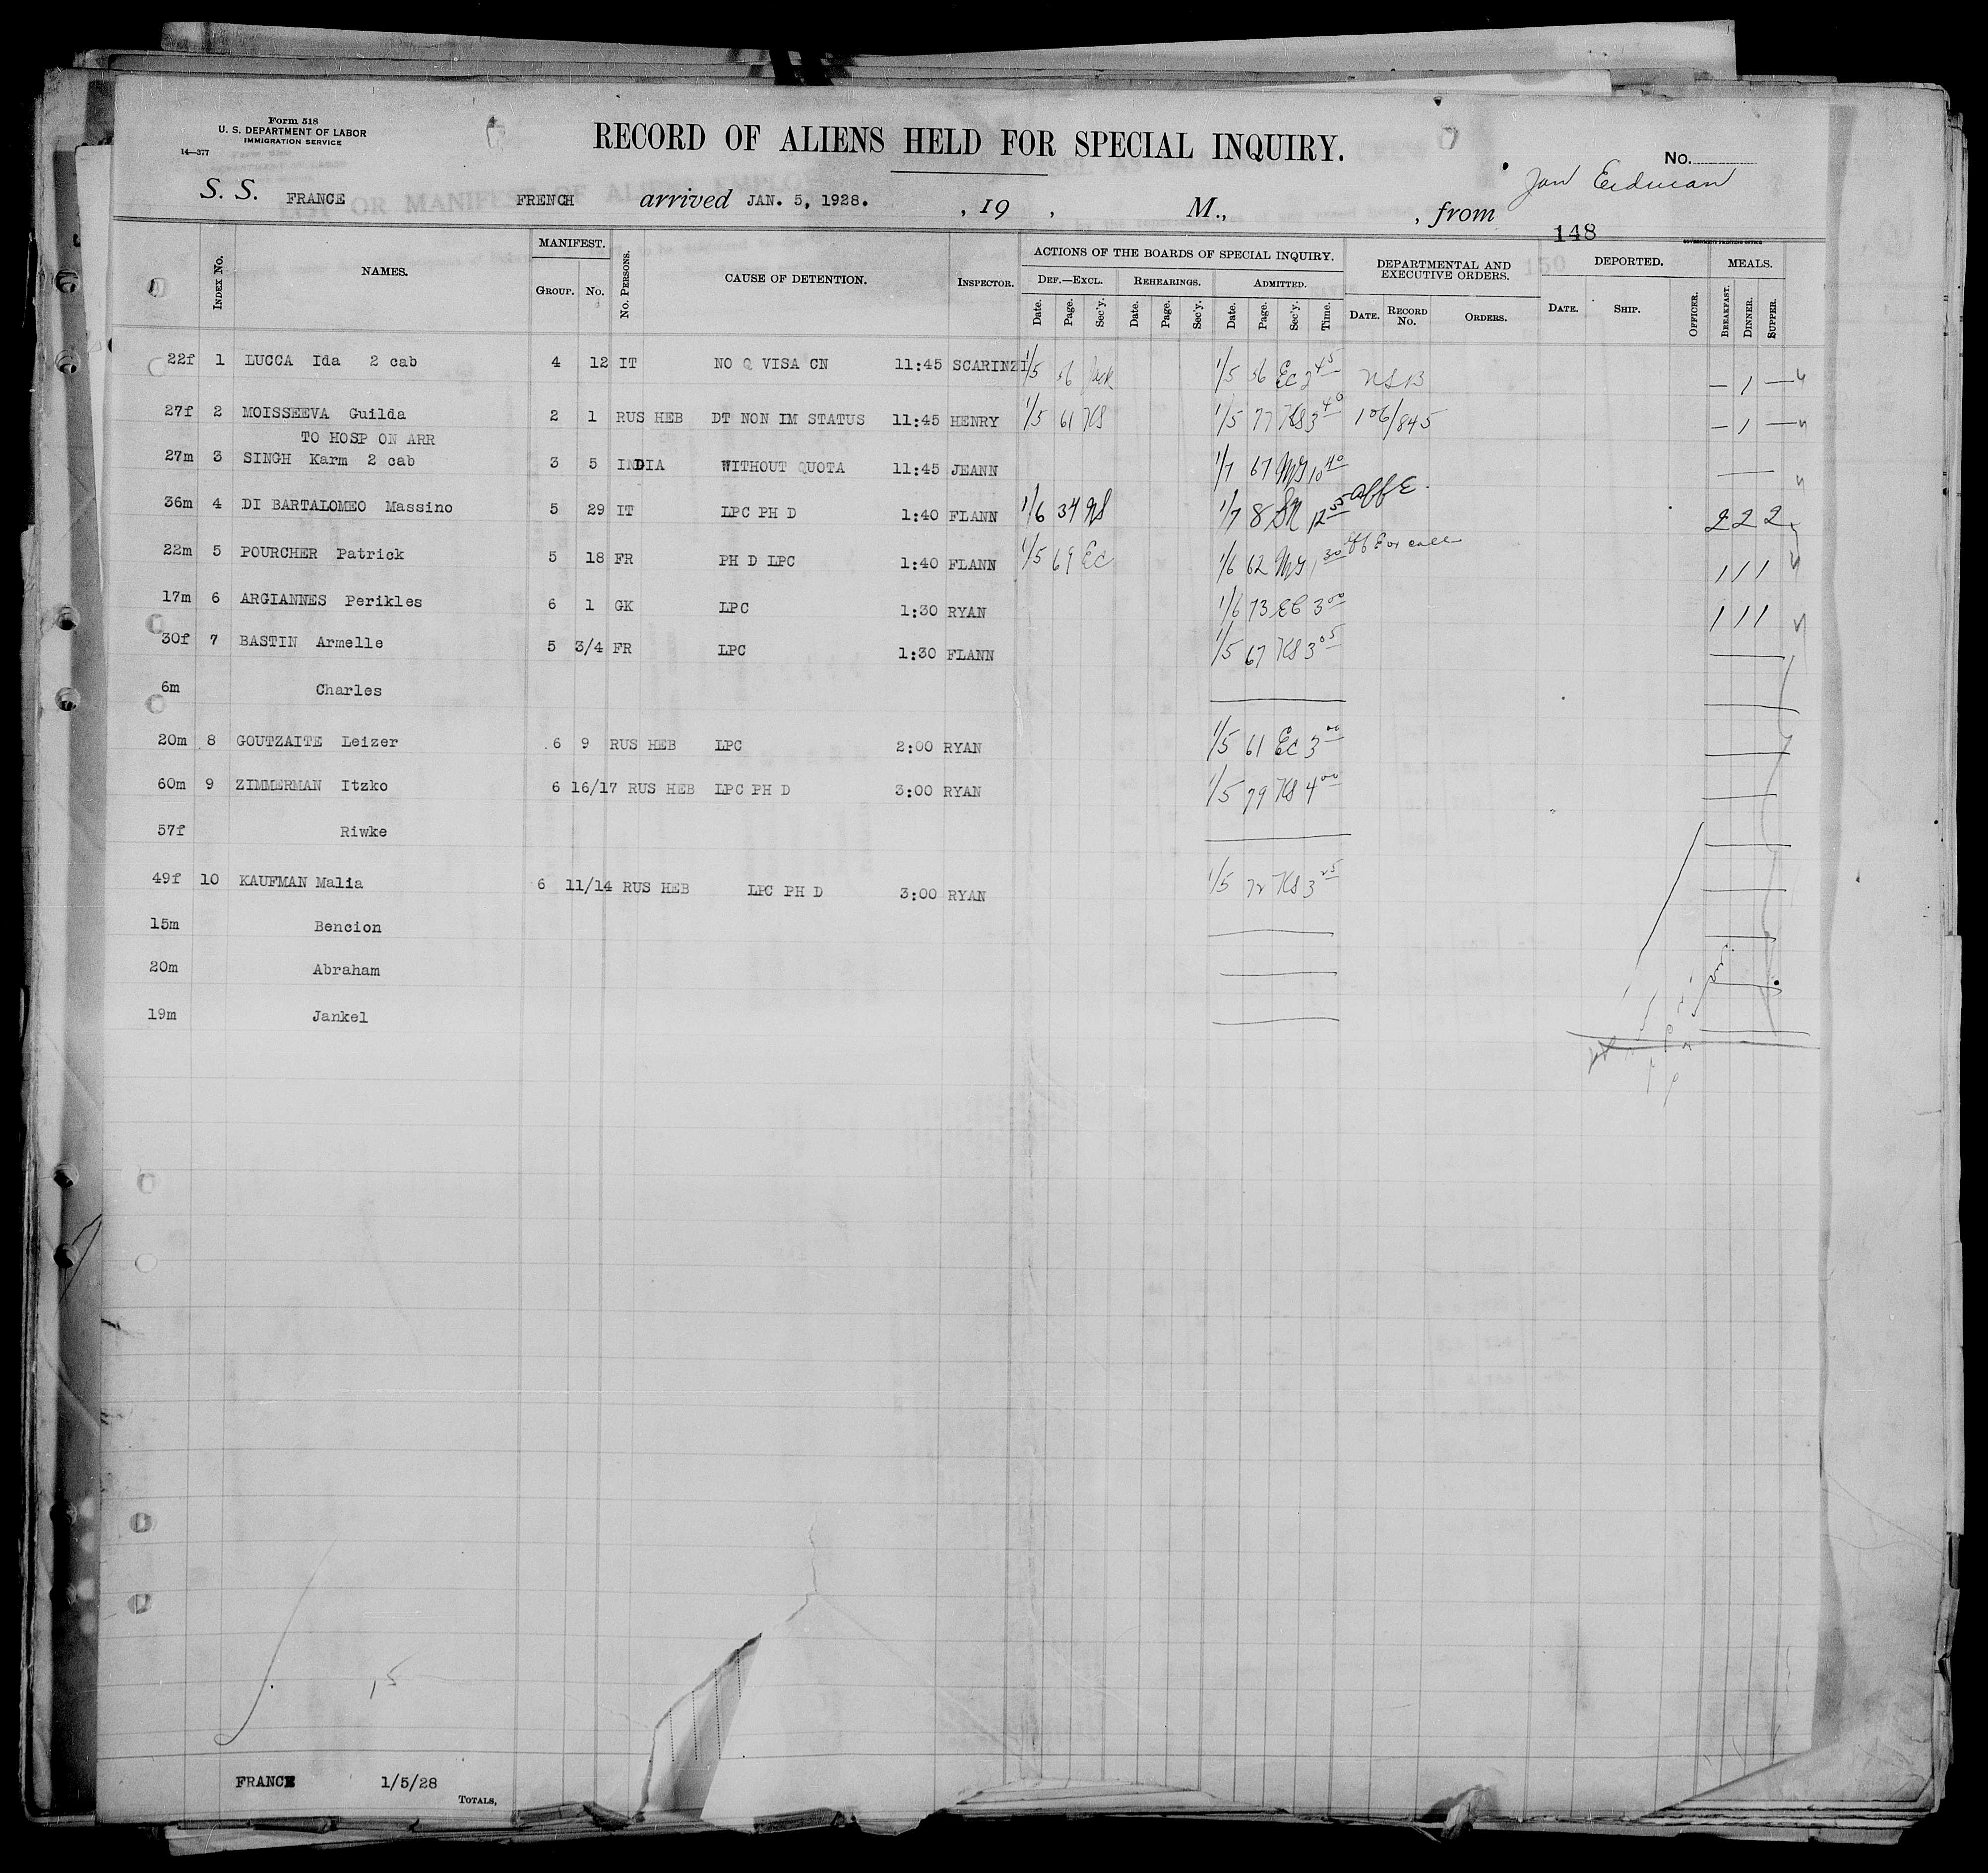 Form 518
U. S. DEPARTMENT OF LABOR
IMMIGRATION SERVICE
14—377
RECORD OF ALIENS HELD FOR SPECIAL INQUIRY.
No.
S. S. FRANCE FRENCH arrived JAN. 5, 1928. , 19 , M., , from Jan Erdman
148
GOVERNMENT PRINTING OFFICE
INDEX No. NAMES. MANIFEST. GROUP. No. No. PERSONS. CAUSE OF DETENTION. INSPECTOR. ACTIONS OF THE BOARDS OF SPECIAL INQUIRY. DEPARTMENTAL AND EXECUTIVE ORDERS. DEPORTED. MEALS.
DEF.—EXCL. REHEARINGS. ADMITTED.
Date. Page. Sec'y. Date. Page. Sec'y. Date. Page. Sec'y. Time. DATE. RECORD No. ORDERS. DATE. SHIP. OFFICER. BREAKFAST. DINNER. SUPPER.
22f 1 LUCCA Ida 2 cab 4 12 IT NO Q VISA CN 11:45 SCARINZI 1/5 56 1/5 56 EC 2 45 NSB — 1 —
27f 2 MOISSEEVA Guilda 2 1 RUS HEB DT NON IM STATUS 11:45 HENRY 1/5 61 KS 1/5 77 KS 3 40 106/845 — 1 —
TO HOSP ON ARR
27m 3 SINGH Karm 2 cab 3 5 INDIA WITHOUT QUOTA 11:45 JEANN 1/7 67 MG 10 40
36m 4 DI BARTALOMEO Massino 5 29 IT LPC PH D 1:40 FLANN 1/6 34 NS 1/7 8 SN 12 55 Aff E. 2 2 2
22m 5 POURCHER Patrick 5 18 FR PH D LPC 1:40 FLANN 1/5 69 EC 1/6 62 MG 1 30 1 1 1
17m 6 ARGIANNES Perikles 6 1 GK LPC 1:30 RYAN 1/6 73 EC 3 00 1 1 1
30f 7 BASTIN Armelle 5 3/4 FR LPC 1:30 FLANN 1/5 67 KS 3 05
6m Charles
20m 8 GOUTZAITE Leizer 6 9 RUS HEB LPC 2:00 RYAN 1/5 61 EC 3 00
60m 9 ZIMMERMAN Itzko 6 16/17 RUS HEB LPC PH D 3:00 RYAN 1/5 79 KS 4 00
57f Riwke
49f 10 KAUFMAN Malia 6 11/14 RUS HEB LPC PH D 3:00 RYAN 1/5 72 KS 3 25
15m Bencion
20m Abraham
19m Jankel
15
FRANCE 1/5/28
TOTALS,